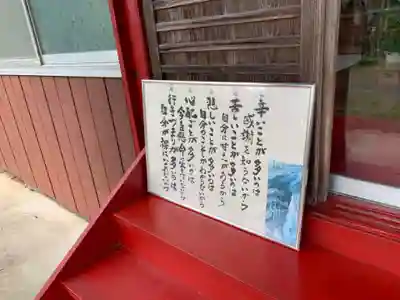 辛いことが多いのは
感謝を知らないから
苦しいことが多いのは
自分に甘えがあるから
悲しいことが多いのは
自分のことしかわからないから
心配ことが多いのは
今を懸命に生きていないから
行きづまりが多いのは
自分が裸になれないから